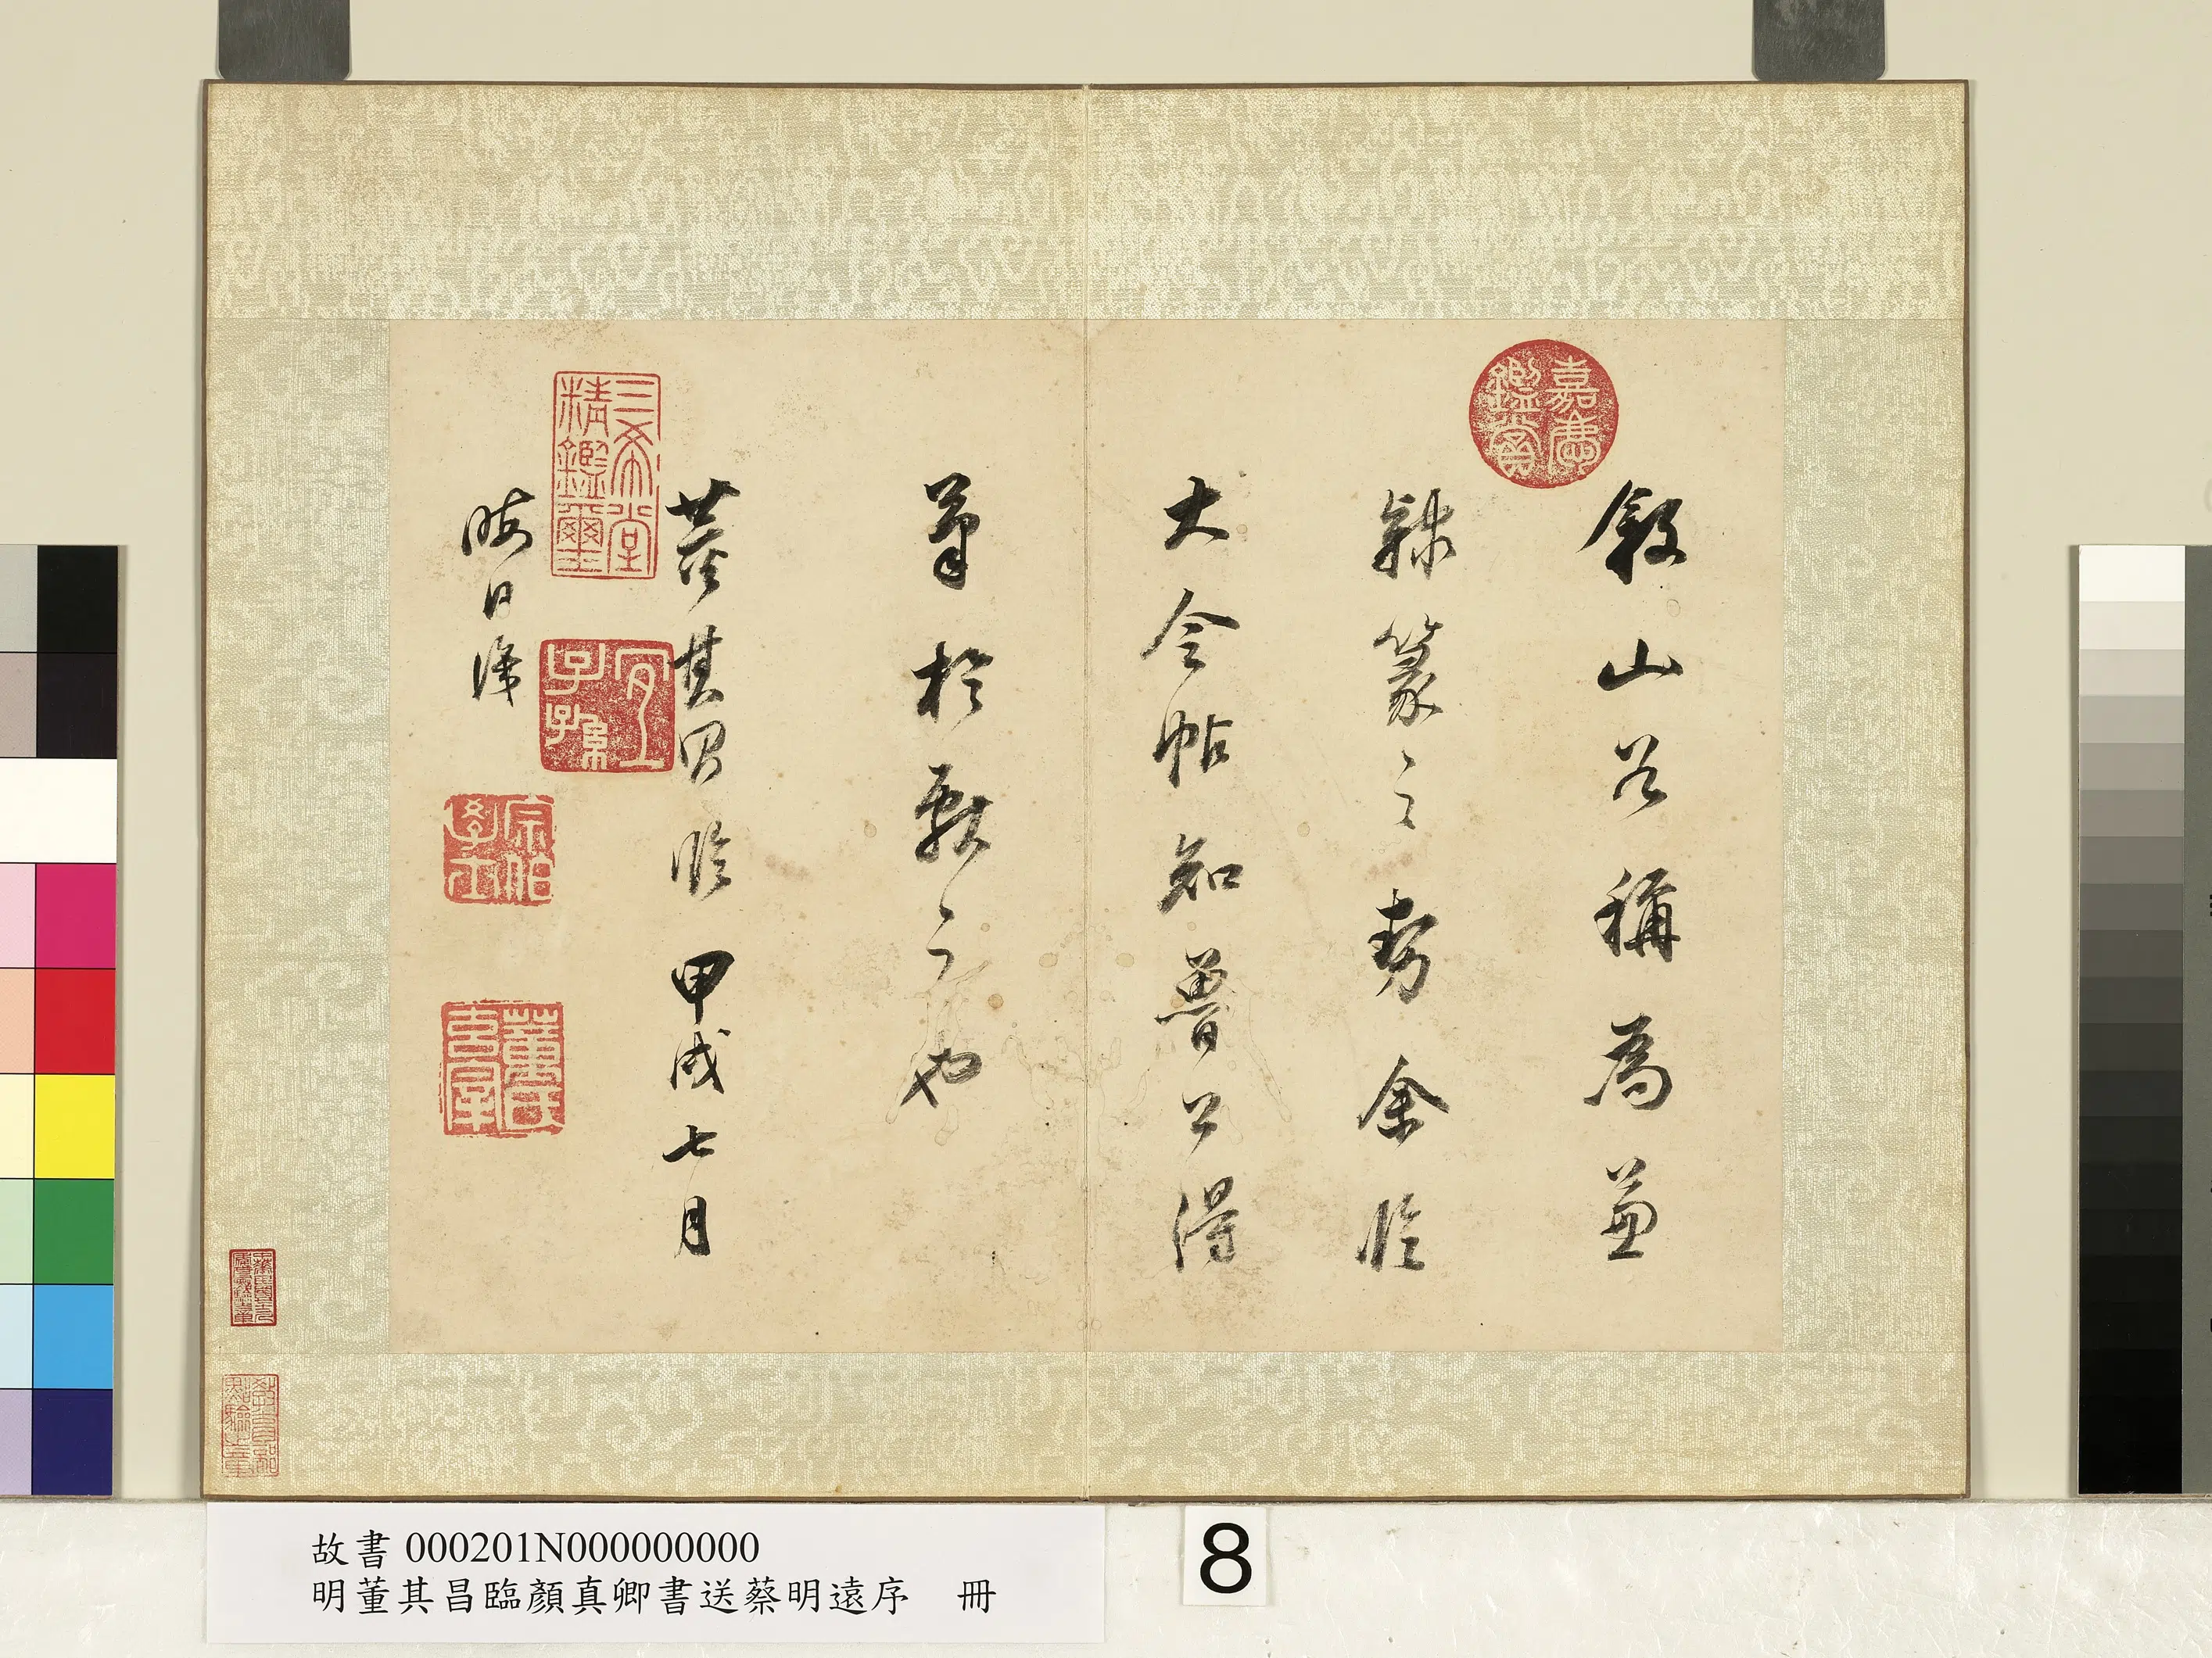 敘山谷稱為兼
隸篆之之勢余臨
大令帖知魯公得
筆於獻之也
董其昌臨 甲戌七月
晦日識
嘉慶鑑賞
三希堂精鑑璽
宜子孫
宗伯學士
董氏
故書 000201N000000000
明董其昌臨顏真卿書送蔡明遠序 冊
8